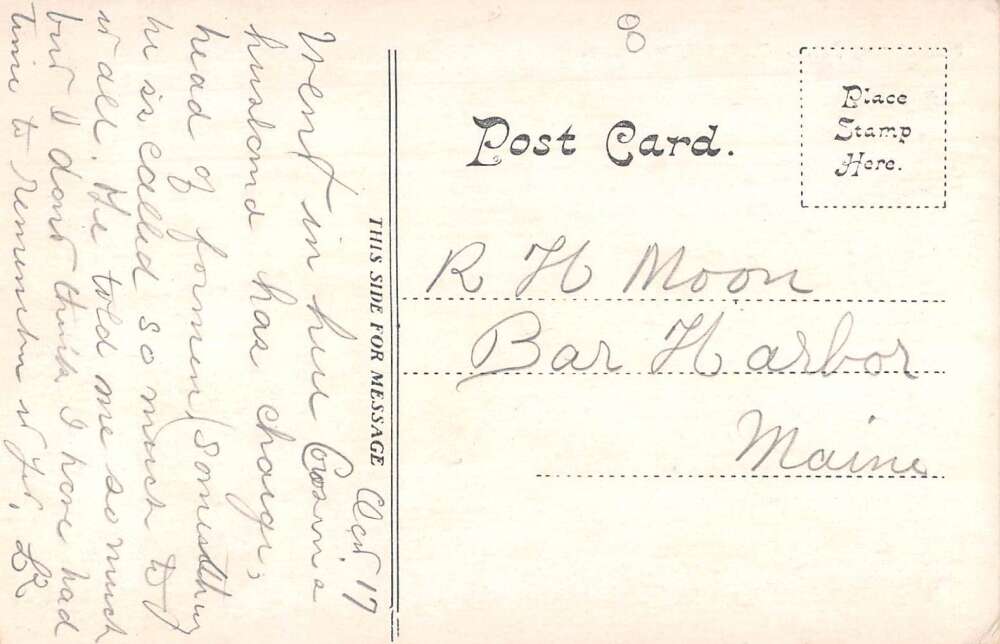 Post Card.
Place
Stamp
Here.
R H Moon
Bar Harbor
Maine
THIS SIDE FOR MESSAGE
Oct 17
Went in here Cosins
husband has charge,
head of formen (something
he is called so much to
it all. He told me so much
but I dont think I have had
time to remember it yet.